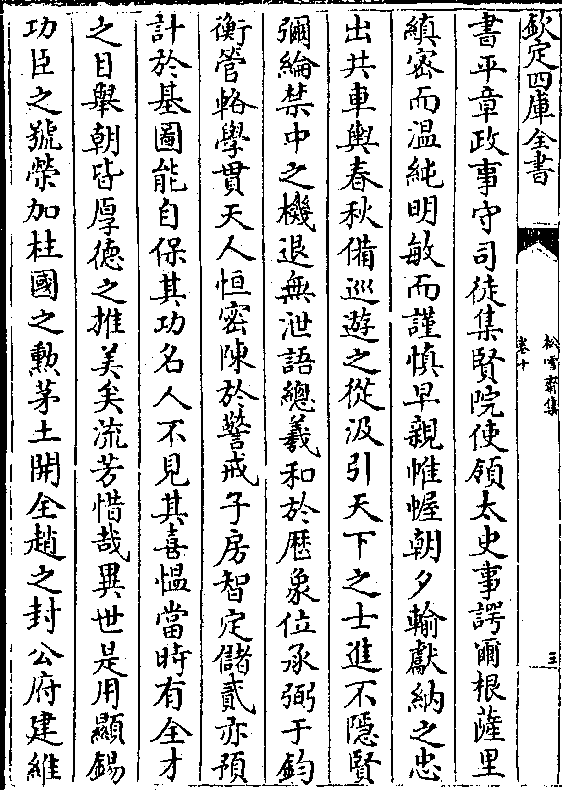 欽定四庫全書
松雪齋集
卷十
三
書平章政事守司徒集賢院使領太史事諤爾根薩里
縝密而溫純明敏而謹慎早親帷幄朝夕輸獻納之忠
出共車輿春秋備巡遊之從汲引天下之士進不隱賢
彌綸禁中之機退無泄語總羲和於歷象位承弼于鈞
衡管輅學貫天人恒密陳於警戒子房智定儲貳亦預
計於基圖能自保其功名人不見其喜愠當時有全才
之目舉朝皆厚德之推美矣流芳惜哉異世是用顯錫
功臣之號榮加柱國之勲茅土開全趙之封公府建維